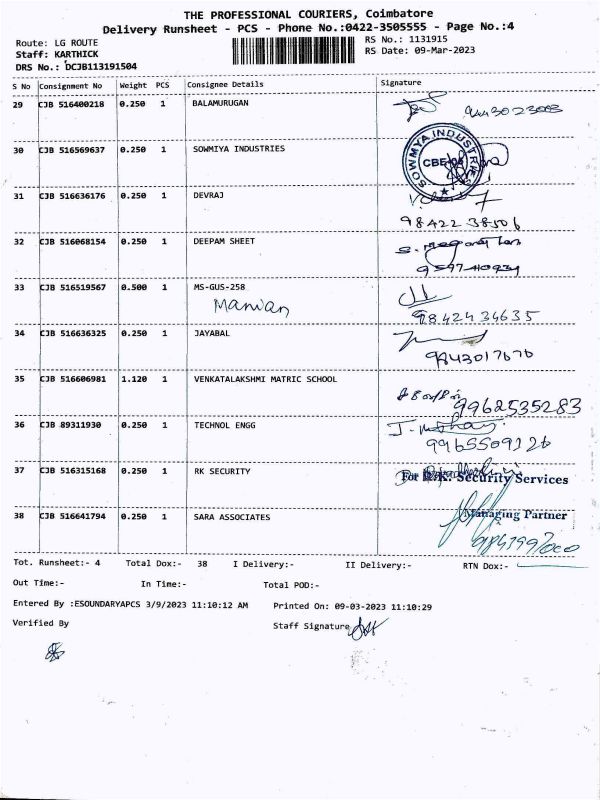 THE PROFESSIONAL COURIERS, Coimbatore
Delivery Runsheet - PCS - Phone No.:0422-3505555 - Page No.:4
Route: LG ROUTE
Staff: KARTHICK
DRS No.: DCJB113191504
RS No.: 1131915
RS Date: 09-Mar-2023
S No Consignment No Weight PCS Consignee Details Signature
29 CJB 516400218 0.250 1 BALAMURUGAN
30 CJB 516569637 0.250 1 SOWMIYA INDUSTRIES
SOWMYA INDUSTRIES
CBE
31 CJB 516636176 0.250 1 DEVRAJ
98422 38506
32 CJB 516068154 0.250 1 DEEPAM SHEET
33 CJB 516519567 0.500 1 MS-GUS-258
Manian
98424 34635
34 CJB 516636325 0.250 1 JAYABAL
9843017676
35 CJB 516606981 1.120 1 VENKATALAKSHMI MATRIC SCHOOL
9962535283
36 CJB 89311930 0.250 1 TECHNOL ENGG
9965509126
37 CJB 516315168 0.250 1 RK SECURITY
For R.K. Security Services
38 CJB 516641794 0.250 1 SARA ASSOCIATES
Managing Partner
Tot. Runsheet:- 4 Total Dox:- 38 I Delivery:- II Delivery:- RTN Dox:-
Out Time:- In Time:- Total POD:-
Entered By :ESOUNDARYAPCS 3/9/2023 11:10:12 AM Printed On: 09-03-2023 11:10:29
Verified By Staff Signature